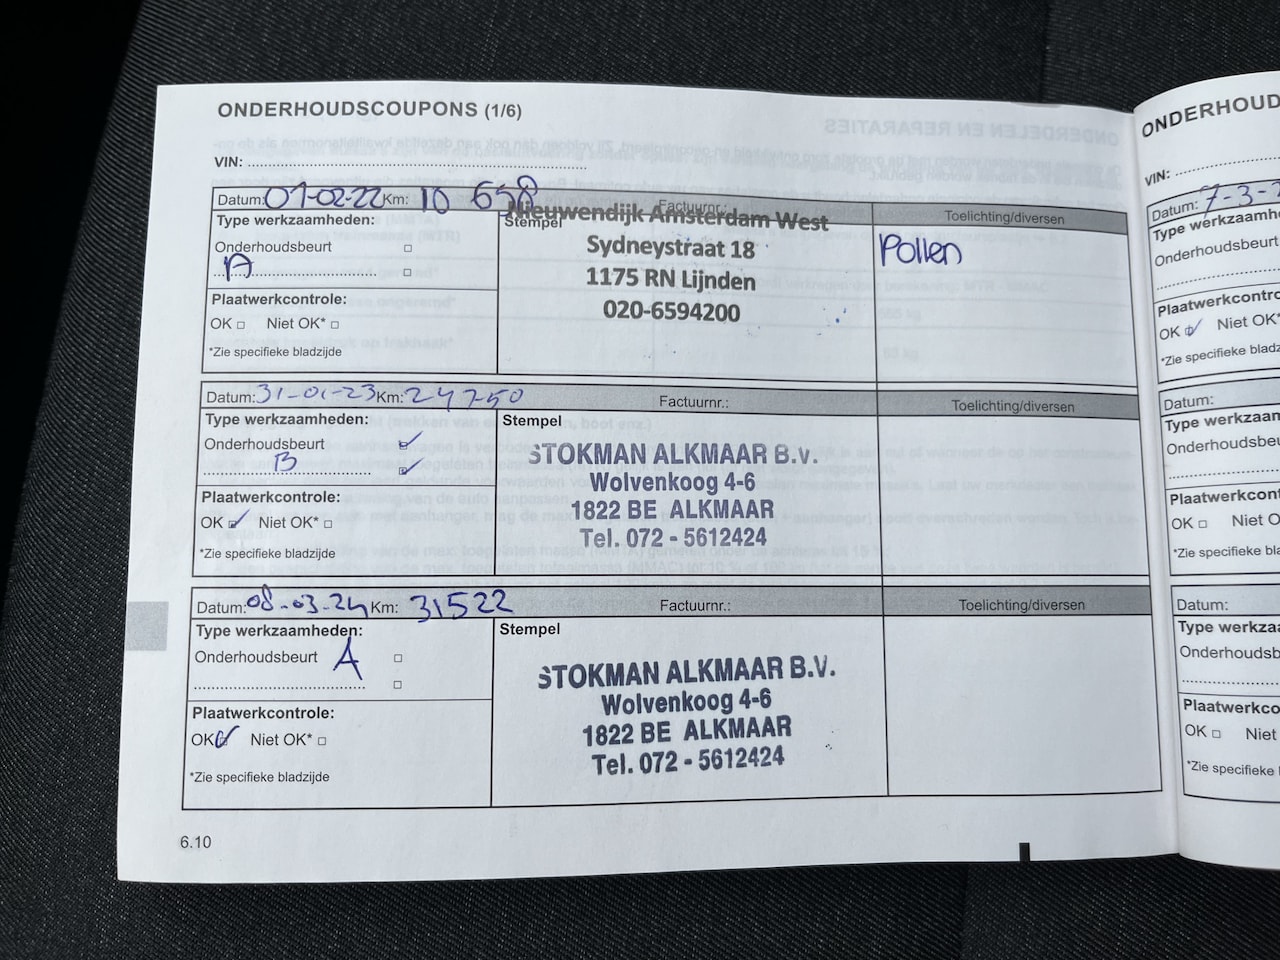 ONDERHOUDSCOUPONS (1/6)
VIN:
Datum: 01-02-22 Km: 10 658 Factuurnr.:
Toelichting/diversen
Type werkzaamheden:
Stempel
Nieuwendijk Amsterdam West
Sydneystraat 18
1175 RN Lijnden
020-6594200
Pollen
Onderhoudsbeurt
A
Plaatwerkcontrole:
OK Niet OK*
*Zie specifieke bladzijde
Datum: 31-01-23 Km: 24750 Factuurnr.: Toelichting/diversen
Type werkzaamheden:
Stempel
Onderhoudsbeurt
B
STOKMAN ALKMAAR B.V.
Wolvenkoog 4-6
1822 BE ALKMAAR
Tel. 072 - 5612424
Plaatwerkcontrole:
OK Niet OK*
*Zie specifieke bladzijde
Datum: 08-03-24 Km: 31522 Factuurnr.: Toelichting/diversen
Type werkzaamheden:
Stempel
Onderhoudsbeurt A
STOKMAN ALKMAAR B.V.
Wolvenkoog 4-6
1822 BE ALKMAAR
Tel. 072 - 5612424
Plaatwerkcontrole:
OK Niet OK*
*Zie specifieke bladzijde
6.10
ONDERHOUD
VIN:
Datum: 7-3-2
Type werkzaamhe
Onderhoudsbeurt
Plaatwerkcontro
OK Niet OK*
*Zie specifieke bladz
Datum:
Type werkzaam
Onderhoudsbeu
Plaatwerkcont
OK Niet O
*Zie specifieke bla
Datum:
Type werkza
Onderhoudsb
Plaatwerkco
OK Niet
*Zie specifieke